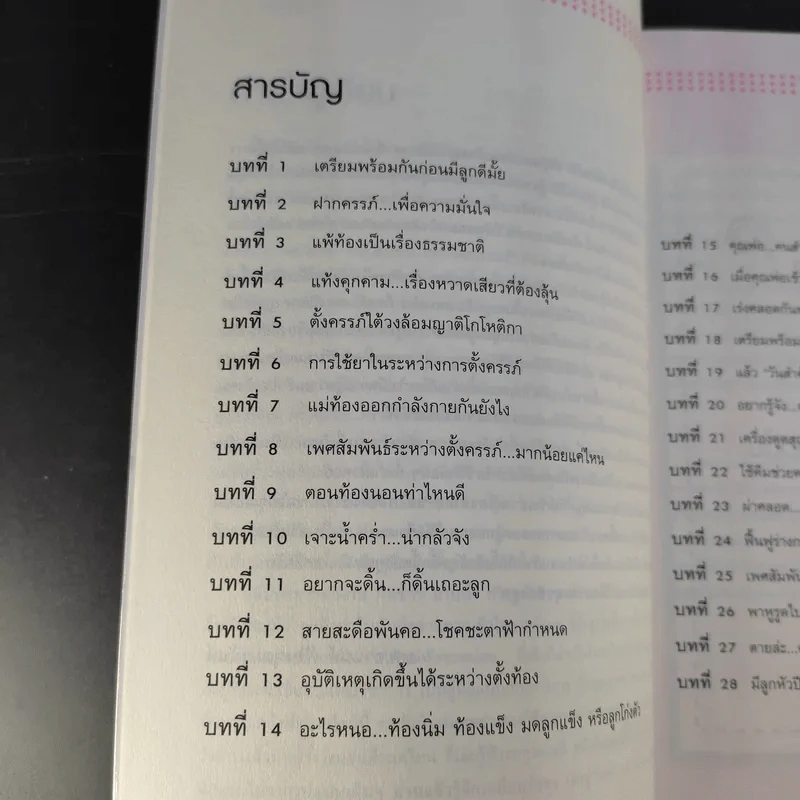 สารบัญ
บทที่ 1 เตรียมพร้อมกันก่อนมีลูกดีมั้ย
บทที่ 2 ฝากครรภ์...เพื่อความมั่นใจ
บทที่ 3 แพ้ท้องเป็นเรื่องธรรมชาติ
บทที่ 4 แท้งคุกคาม...เรื่องหวาดเสียวที่ต้องลุ้น
บทที่ 5 ตั้งครรภ์ใต้วงล้อมญาติโกโหติกา
บทที่ 6 การใช้ยาในระหว่างการตั้งครรภ์
บทที่ 7 แม่ท้องออกกำลังกายกันยังไง
บทที่ 8 เพศสัมพันธ์ระหว่างตั้งครรภ์...มากน้อยแค่ไหน
บทที่ 9 ตอนท้องนอนท่าไหนดี
บทที่ 10 เจาะน้ำคร่ำ...น่ากลัวจัง
บทที่ 11 อยากจะดิ้น...ก็ดิ้นเถอะลูก
บทที่ 12 สายสะดือพันคอ...โชคชะตาฟ้ากำหนด
บทที่ 13 อุบัติเหตุเกิดขึ้นได้ระหว่างตั้งท้อง
บทที่ 14 อะไรหนอ...ท้องนิ่ม ท้องแข็ง มดลูกแข็ง หรือลูกโก่งตัว
บทที่ 15 คุณพ่อ...
บทที่ 16 เมื่อคุณพ่อ
บทที่ 17 เร่งคลอด
บทที่ 18 เตรียมพร้อม
บทที่ 19 แล้ว
บทที่ 20 อยากรู้จัง...
บทที่ 21 เครื่องดูด
บทที่ 22 ใช้คีมช่วย
บทที่ 23 ผ่าคลอด...
บทที่ 24 ฟื้นฟูร่าง
บทที่ 25 เพศสัมพัน
บทที่ 26
บทที่ 27 ตายล่ะ...
บทที่ 28 มีลูกหัวปี